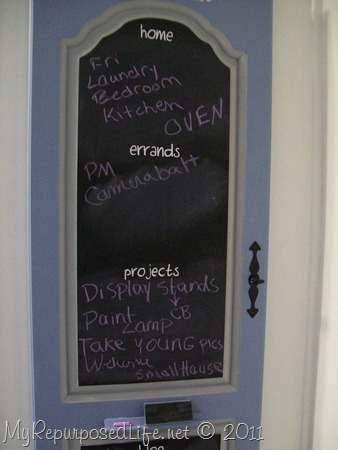 home
Fri
Laundry
Bedroom
Kitchen
OVEN
errands
PM
Camera batt
projects
Display stands
Paint CB
Lamp
Take YOUNG pics
Welcome
small House
MyRepurposedLife.net © 2011